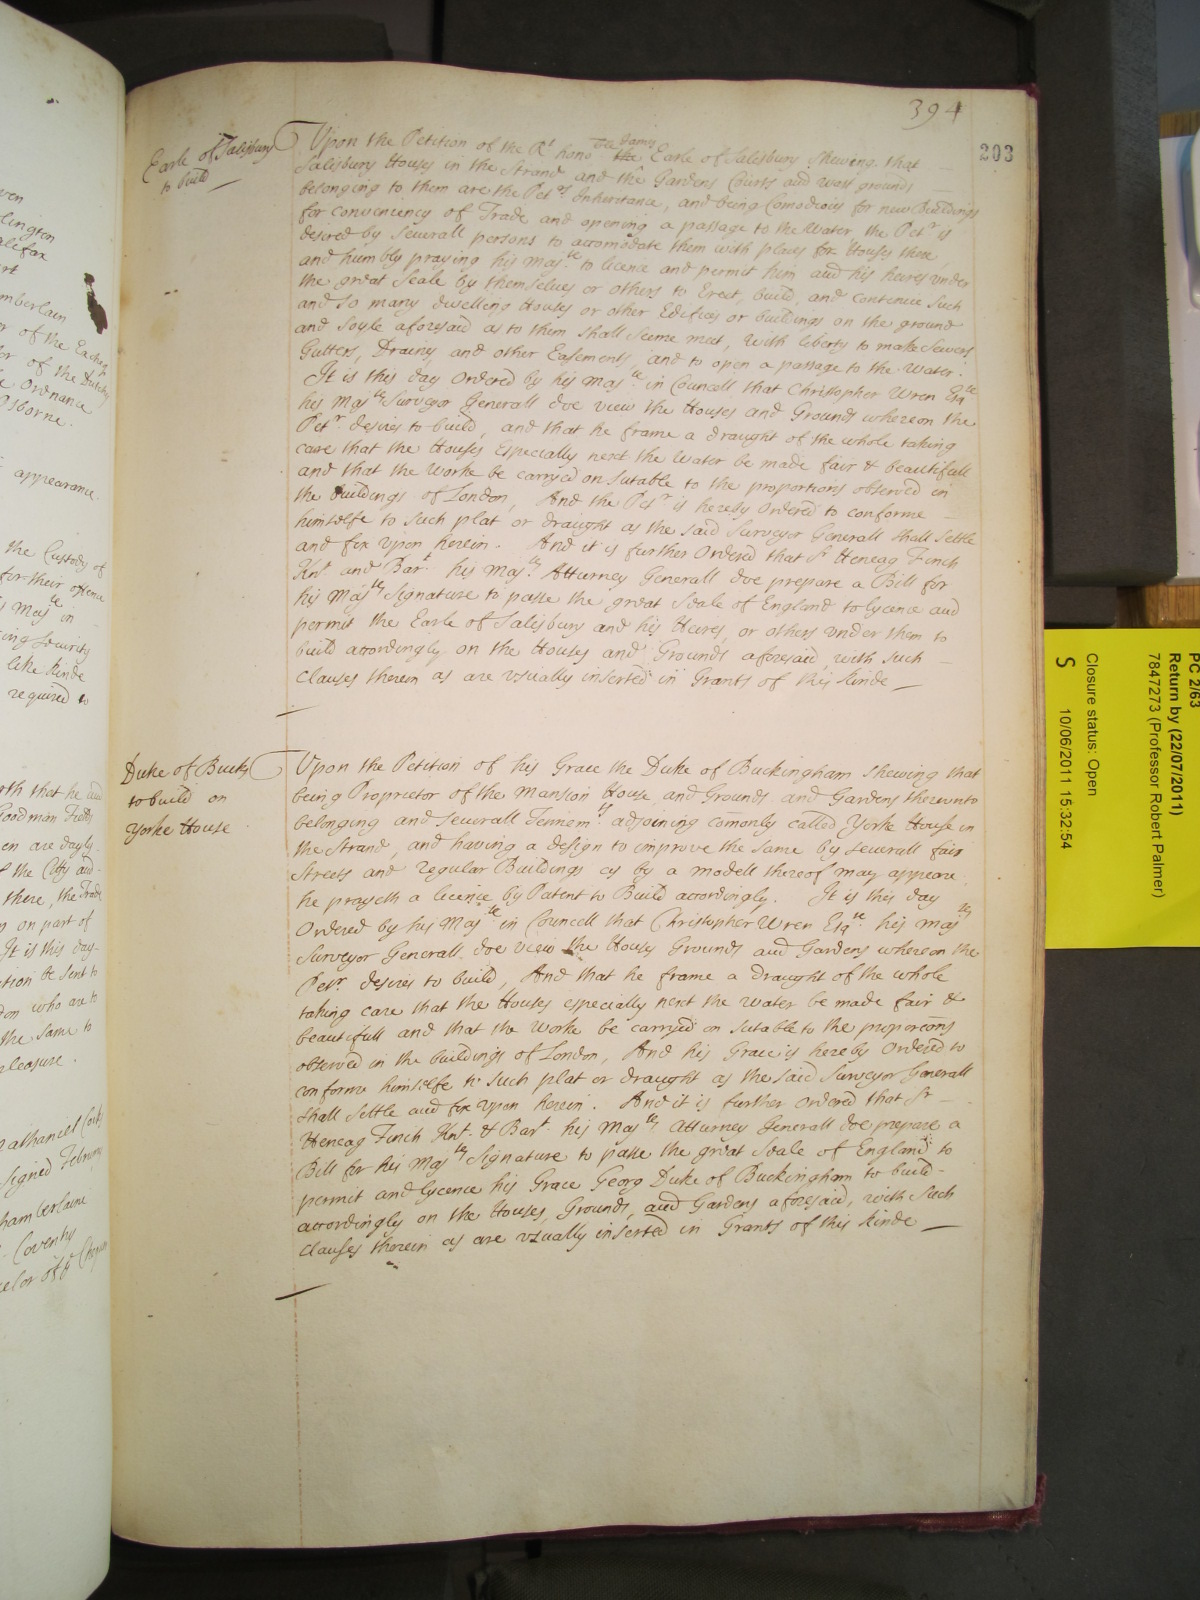 394
203
Earle of Salisbury
to build
Upon the Petition of the Rt hono ble James the Earle of Salesbury shewing that
Salisbury House in the Strand and the Gardens Courts and wast grounds
belonging to them are the Petrs Inheritance, and being Comodious for new Buildings
for conveniency of Trade and opening a passage to the Water the Petr is
desired by severall persons to accomodate them with places for Houses there,
and humbly praying his Majtie to licence and permit him and his heires under
the great Seale by themselves or others to Erect, build, and contenue such
and so many dwelling Houses or other Edifices or buildings on the ground
and Soyle aforesaid as to them shall seeme meet, with liberty to make Sewers
Gutters, Draines and other Easements, and to open a passage to the Water:
It is this day Ordered by his Majtie in Councell that Christopher Wren Esqre
his Majtys Surveyor Generall doe view the Houses and Grounds whereon the
Petr desires to build, and that he frame a draught of the whole taking
care that the Houses Especially next the Water be made fair & beautifull
and that the Worke be carryed on sutable to the proportions observed in
the buildings of London, And the Petr is hereby Ordered to conforme
himselfe to such plat or draught as the said Surveyor Generall shall settle
and fix upon herein. And it is further Ordered that Sr Heneag Finch
Knt and Bart his Majtys Atturney Generall doe prepare a Bill for
his Majtys Signature to passe the great Seale of England to lycence and
permit the Earle of Salisbury and his Heires, or others under them to
build accordingly on the Houses and Grounds aforesaid, with such
Clauses therein as are usually inserted in Grants of this kinde
Duke of Bucks
to build on
Yorke House
Upon the Petition of his Grace the Duke of Buckingham shewing that
being Proprietor of the Mansion House and Grounds and Gardens thereunto
belonging and severall Tennemts adjoining comonly called Yorke House in
the Strand, and having a design to improve the same by severall fair
Streets and regular Buildings as by a modell thereof may appeare,
he prayeth a licence by Patent to Build accordingly. It is this day
Ordered by his Majtie in Councell that Christopher Wren Esqre his Majtys
Surveyor Generall doe view the House Grounds and Gardens whereon the
Petr desires to build, And that he frame a draught of the whole
taking care that the Houses especially next the Water be made fair &
beautifull and that the Worke be carryed on sutable to the proporcons
observed in the buildings of London, And his Grace is hereby Ordered to
conforme himselfe to such plat or draught as the said Surveyor Generall
shall settle and fix upon herein. And it is further Ordered that Sr
Heneag Finch Knt & Bart his Majtys Atturney Generall doe prepare a
Bill for his Majtys Signature to passe the great Seale of England to
permit and lycence his Grace Georg Duke of Buckingham to build
accordingly on the Houses, Grounds, and Gardens aforesaid, with such
Clauses therein as are usually inserted in Grants of this kinde
PC 2/63
Return by (22/07/2011)
7847273 (Professor Robert Palmer)
Closure status: Open
S 10/06/2011 15:32:54